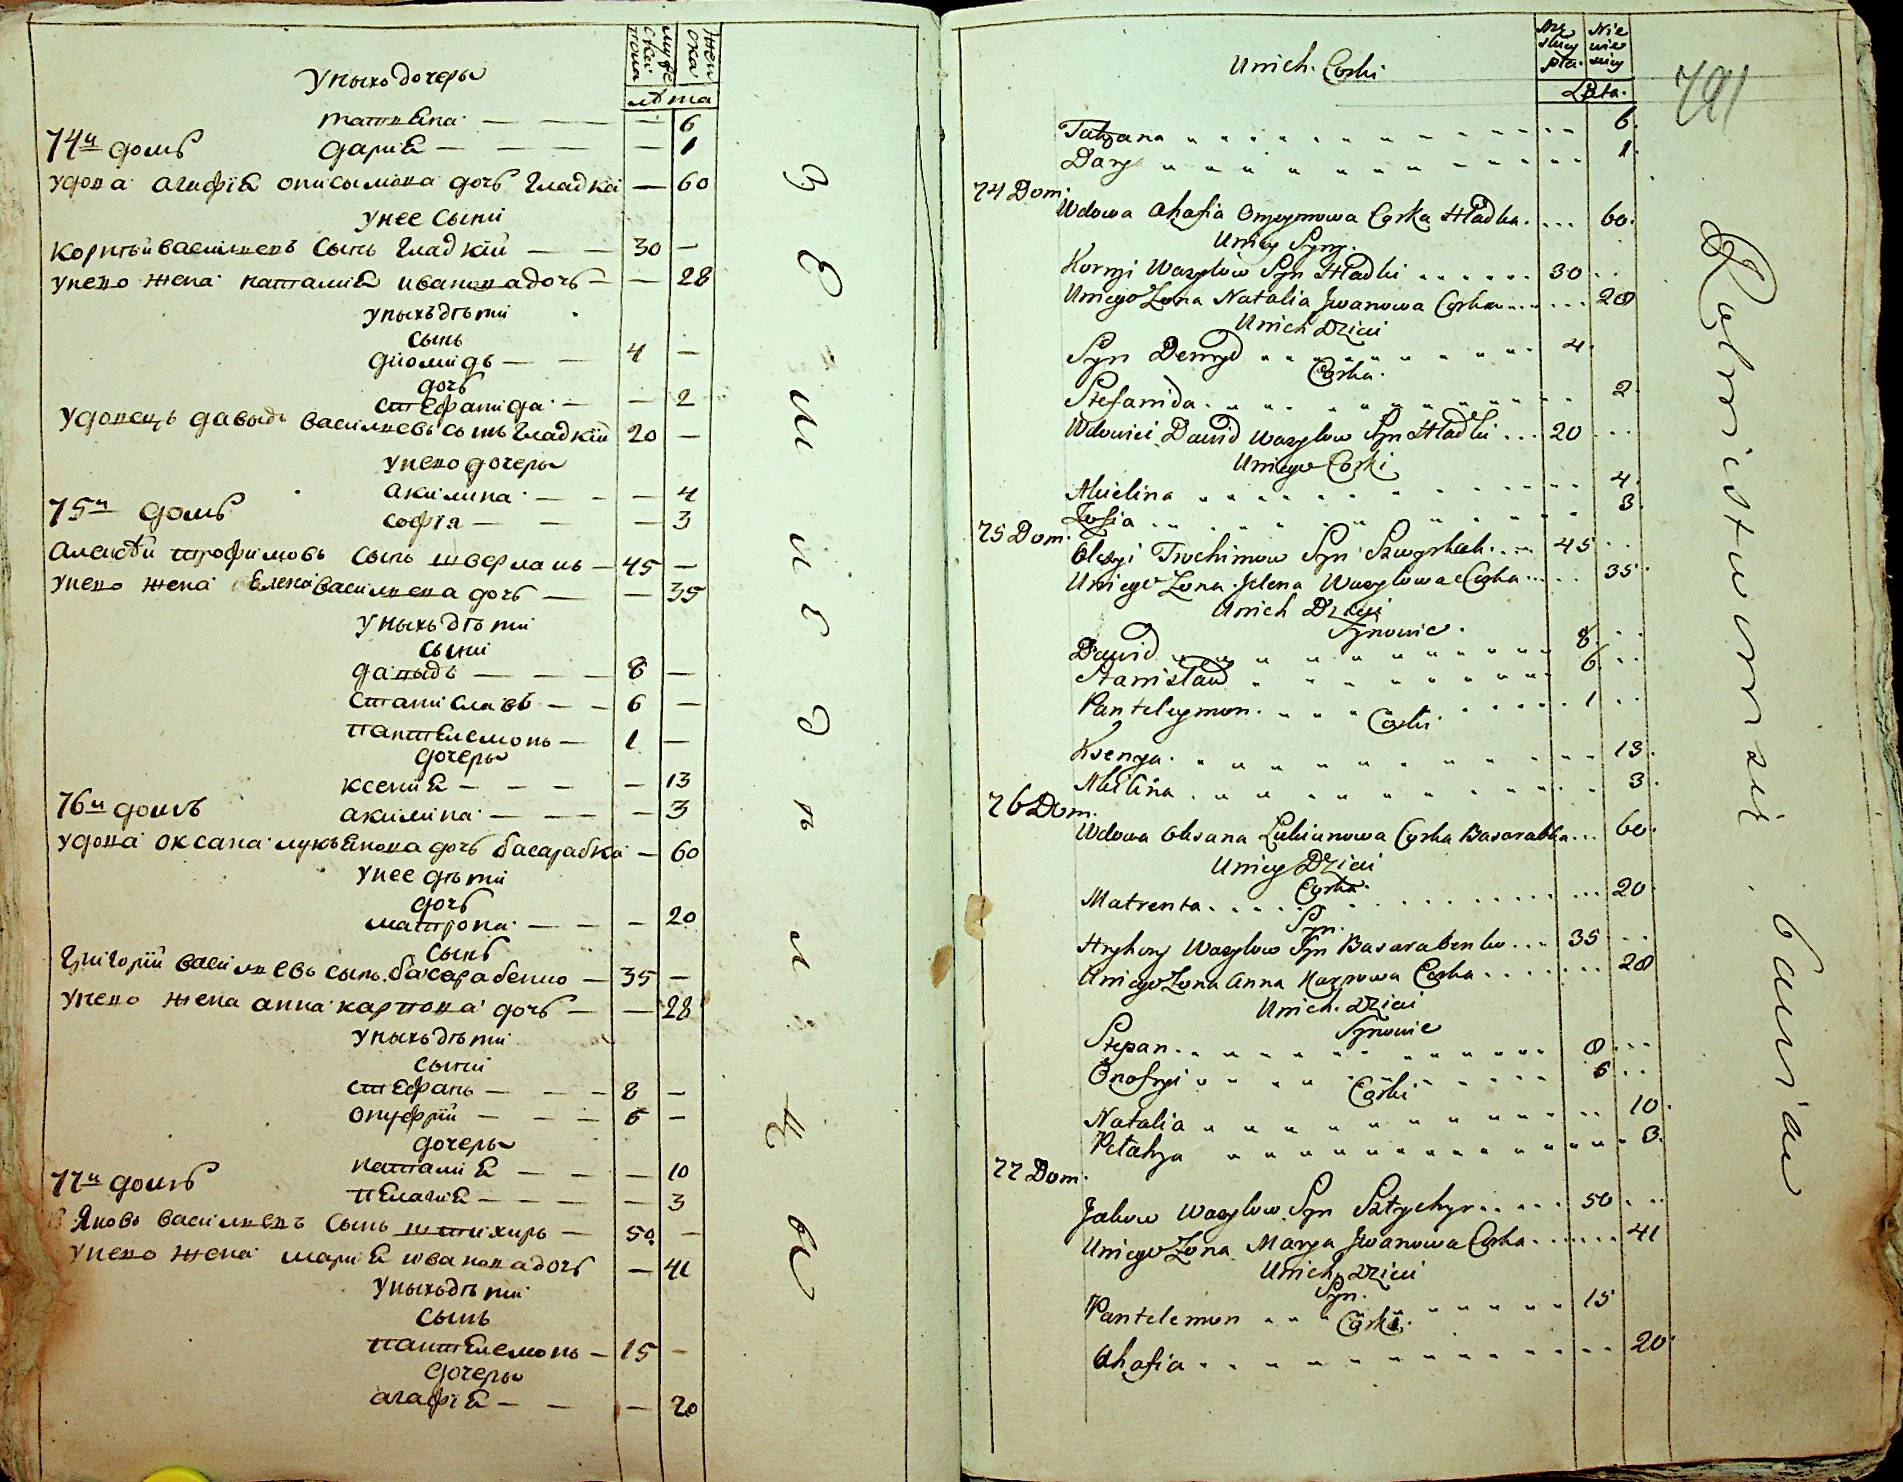 Уныхъ дочеры
мужескаго пола
женска
лѣта
татиѣна — — — — 6
дариѣ — — — — 1
74й домъ
удова агафиѣ онисымова дочь гладка — 60
унее сыны
корнѣй василиевъ сынъ гладкій — — 30 —
унего жена наталиѣ иванова дочъ — — 28
уныхъ дѣти
сынъ
диомидъ — — 4 —
дочъ
стефанида — — 2
удовецъ давыдъ василиевъ сынъ гладкій 20 —
унего дочеры
акилина — — — 4
75й домъ
софія — — — 3
алексѣй трофимовъ сынъ шверланъ — 45 —
унего жена елена василиева дочъ — — 35
уныхъ дѣти
сыны
давыдъ — — — 8 —
станиславъ — — 6 —
пантелемонъ — 1 —
дочеры
ксениѣ — — — — 13
76й домъ
акилина — — — — 3
удова оксана лукъянова дочъ басарабка — 60
унее дѣти
дочъ
матрона — — — 20
сынъ
григорій василиевъ сынъ басарабенко — 35 —
унего жена анна карпова дочъ — — 28
уныхъ дѣти
сыны
стефанъ — — — 8 —
онуфрій — — — 6 —
дочеры
наталиѣ — — — 10
77й домъ
пелагиѣ — — — — 3
Яковъ василиевъ сынъ штихиръ — 50 —
унего жена мариѣ иванова дочъ — 41
уныхъ дѣти
сынъ
пантелемонъ — 15 —
дочеры
агафиѣ — — — 20
Unich. Corki
Męskiey płci
Niewiesciey
Lata.
791
Tatyana 6.
Darya 1.
74 Dom.
Wdowa Ahafia Onisymowa Corka Hładka. ... 60.
Uniey Syny.
Korniy Wasylow Syn Hładki ...... 30 ..
Uniego Zona Natalia Jwanowa Corka ...... 28
Unich Dzieci
Syn Demyd 4.
Corka.
Stefanida. 2.
Wdowiec Dawid Wasylow Syn Hładki ... 20 ...
Uniego Corki
Akielina 4.
Zofia 3.
75 Dom.
Olexyi Trochimow Syn 45 ..
Uniego Zona Jelena Wasylowa Corka ..... 35.
Unich Dzieci
Synowie.
Dawid 8. ..
Stanisław 6 ..
Panteleymon. 1 ..
Corki.
Ksenya. 13.
Akilina. 3.
76 Dom.
Wdowa Oksana Lukianowa Corka Basarabka... 60.
Uniey Dzieci
Corka.
Matrenta. 20.
Syn.
Hryhory Wasylow Syn Basarabenko... 35 ...
Uniego Zona Anna Karpowa Corka ....... 28
Unich. Dzieci
Synowie
Stepan. 8 ...
Onofryi 6 ..
Corki
Natalia 10.
Pelahya 3.
77 Dom.
Jakow Wasylow Syn Sztychyr ..... 50 ...
Uniego Zona Marya Jwanowa Corka ....... 41
Unich Dzieci
Syn.
Pantelemon 15
Corki.
Ahafia 20.